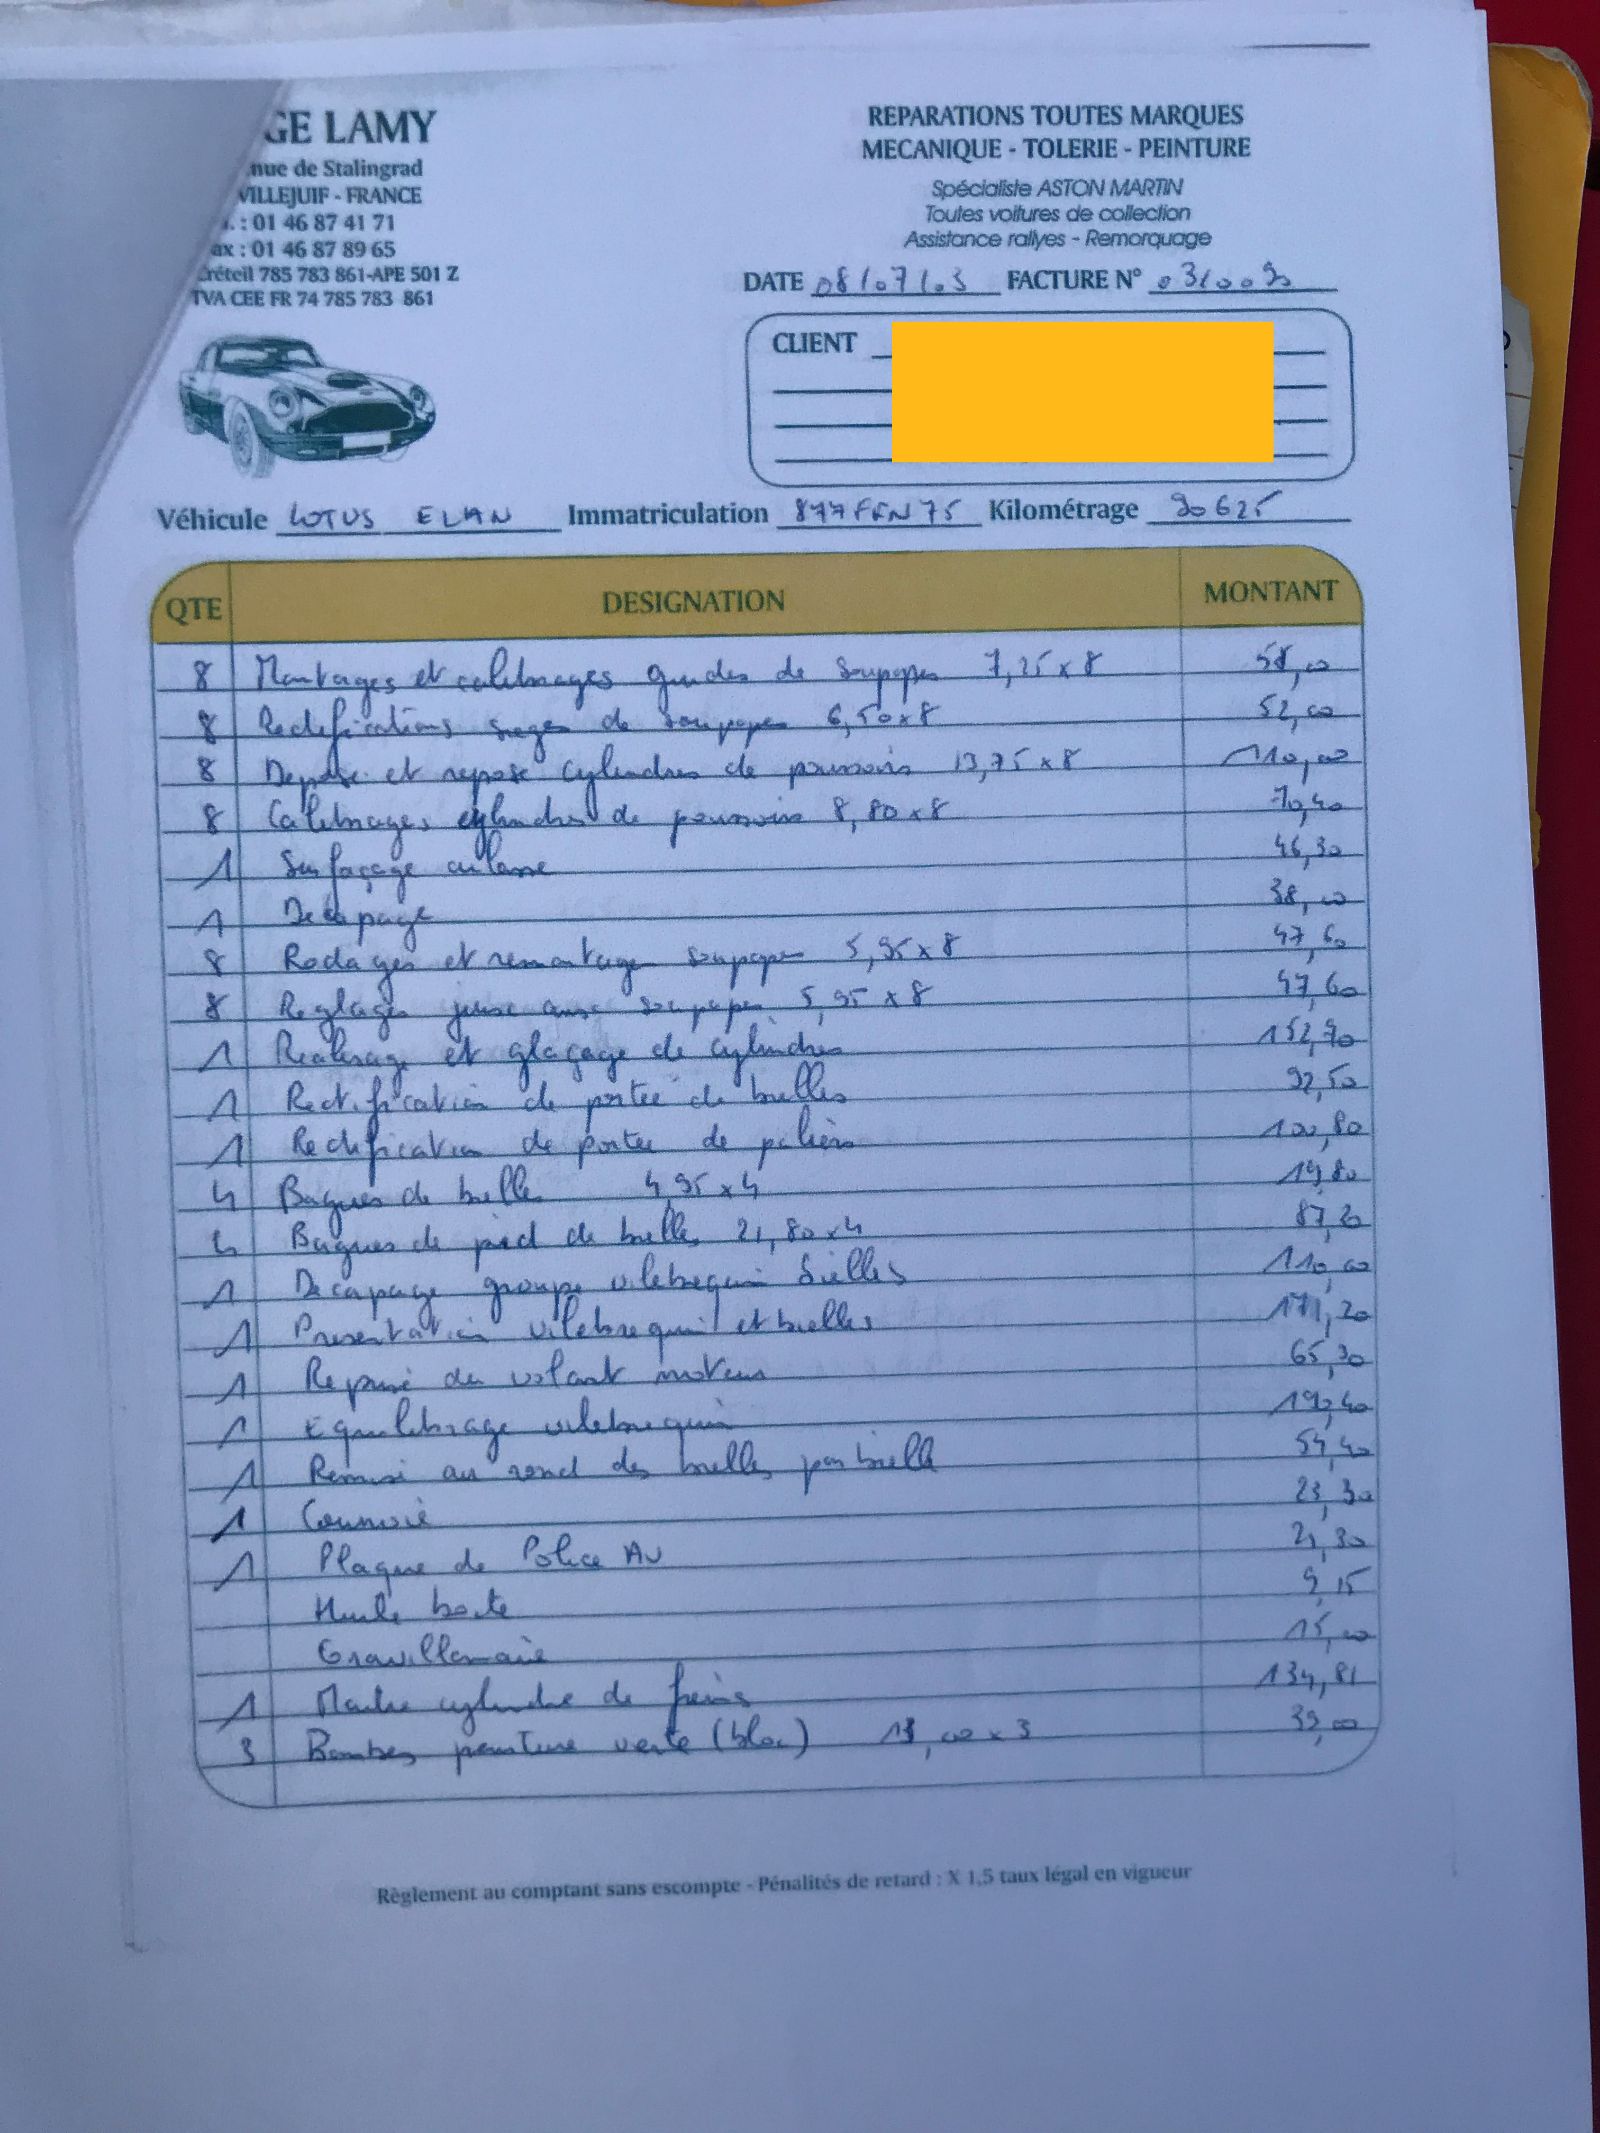 GE LAMY
nue de Stalingrad
VILLEJUIF - FRANCE
. : 01 46 87 41 71
ax : 01 46 87 89 65
Créteil 785 783 861-APE 501 Z
TVA CEE FR 74 785 783 861
REPARATIONS TOUTES MARQUES
MECANIQUE - TOLERIE - PEINTURE
Spécialiste ASTON MARTIN
Toutes voitures de collection
Assistance rallyes - Remorquage
DATE 08/07/03 FACTURE N° 03/0090
CLIENT
Véhicule LOTUS ELAN Immatriculation 877FFN75 Kilométrage 90625
QTE DESIGNATION MONTANT
8 Montages et calibrages guides de soupapes 7,25 x 8 58,00
8 Rectifications sieges de soupapes 6,50 x 8 52,00
8 Depose et repose cylindres de poussoirs 13,75 x 8 110,00
8 Calibrages cylindres de poussoirs 8,80 x 8 70,40
1 Surfaçage culasse 46,30
1 Decapage 38,00
8 Rodages et remontage soupapes 5,95 x 8 47,60
8 Reglages jeux aux soupapes 5,95 x 8 47,60
1 Realesage et glaçage de cylindres 152,70
1 Rectification de portee de bielles 92,50
1 Rectification de portee de paliers 100,80
4 Bagues de bielle 4,95 x 4 19,80
4 Bagues de pied de bielles 21,80 x 4 87,20
1 Decapage groupe vilebrequin bielles 110,00
1 Presentation vilebrequin et bielles 171,20
1 Reprise du volant moteur 65,30
1 Equilibrage vilebrequin 192,40
1 Remise au rond des bielles par bielle 54,40
1 Courroie 23,30
1 Plaque de Police AV 21,30
Huile boite 9,15
Gravillonnaire 15,00
1 Maitre cylindre de freins 134,81
3 Bombes peinture verte (bloc) 13,00 x 3 39,00
Règlement au comptant sans escompte - Pénalités de retard : X 1,5 taux légal en vigueur